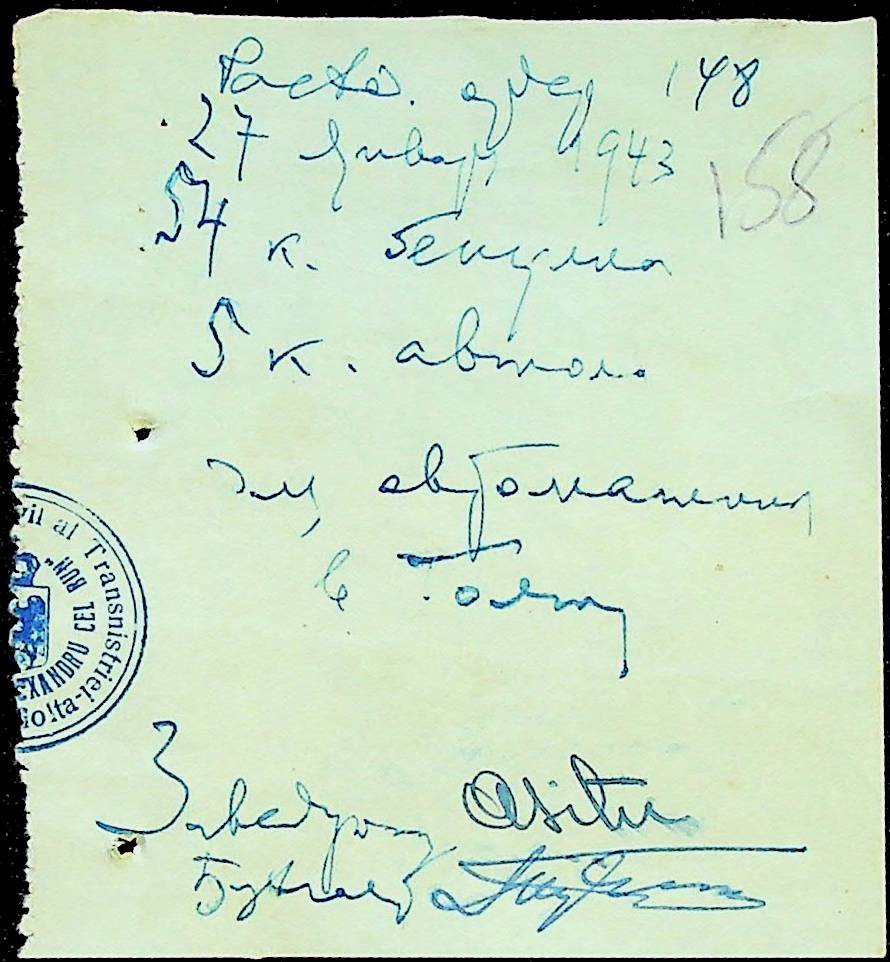 148
27 Января 1943
158
54 к. бензина
5 к. автол.
автомашины
в Голту
Заведующ
Бухгалт
vil al Transnistriei
EXANDRU CEL BUN"
Golta-